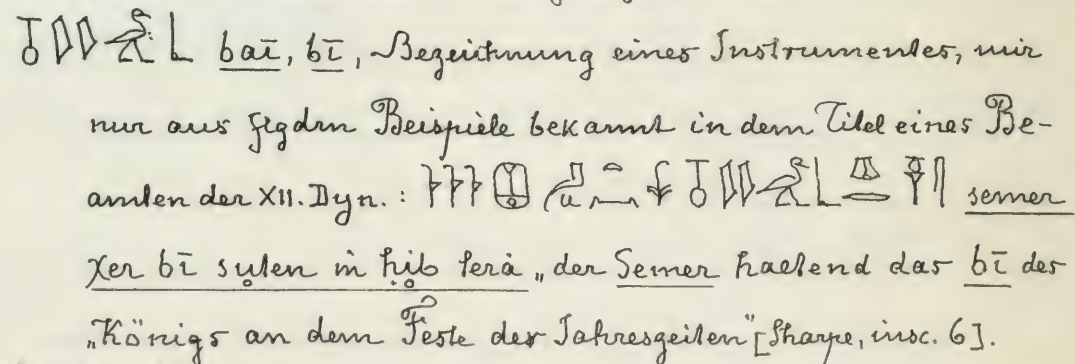 baī, bī, Bezeichnung eines Instrumentes, mir
nur aus flgdm Beispiele bekannt in dem Titel eines Be-
amten der XII. Dyn.: semer
χer bī suten m ḥib terà „der Semer haltend das bī des
„Königs an dem Feste der Jahreszeiten" [Sharpe, insc. 6].